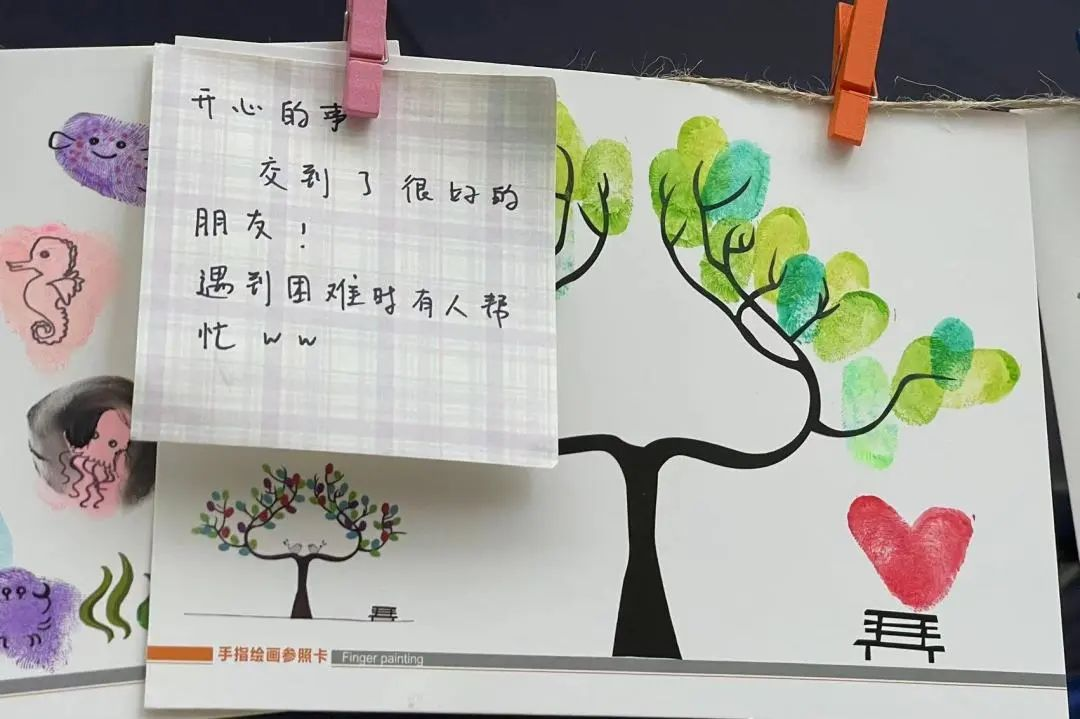 开心的事
交到了很好的
朋友！
遇到困难时有人帮
忙 w w
手指绘画参照卡 Finger painting